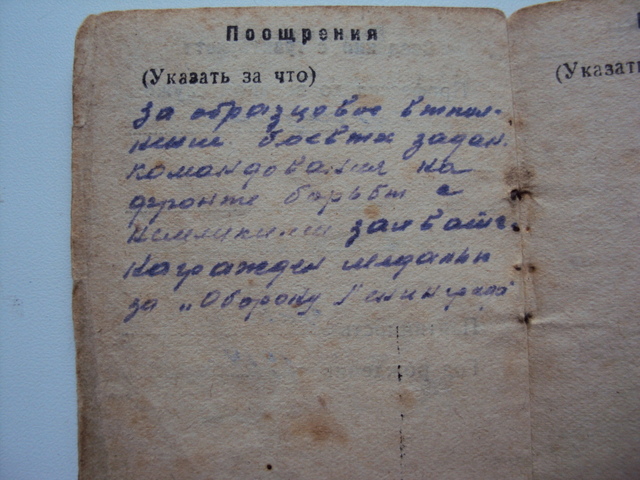 Поощрения
(Указать за что)
за образцовое выпол-
нение боевых задан.
командования на
фронте борьбы с
немецкими захватч.
награжден медалью
за „Оборону Ленинграда"
(Указать